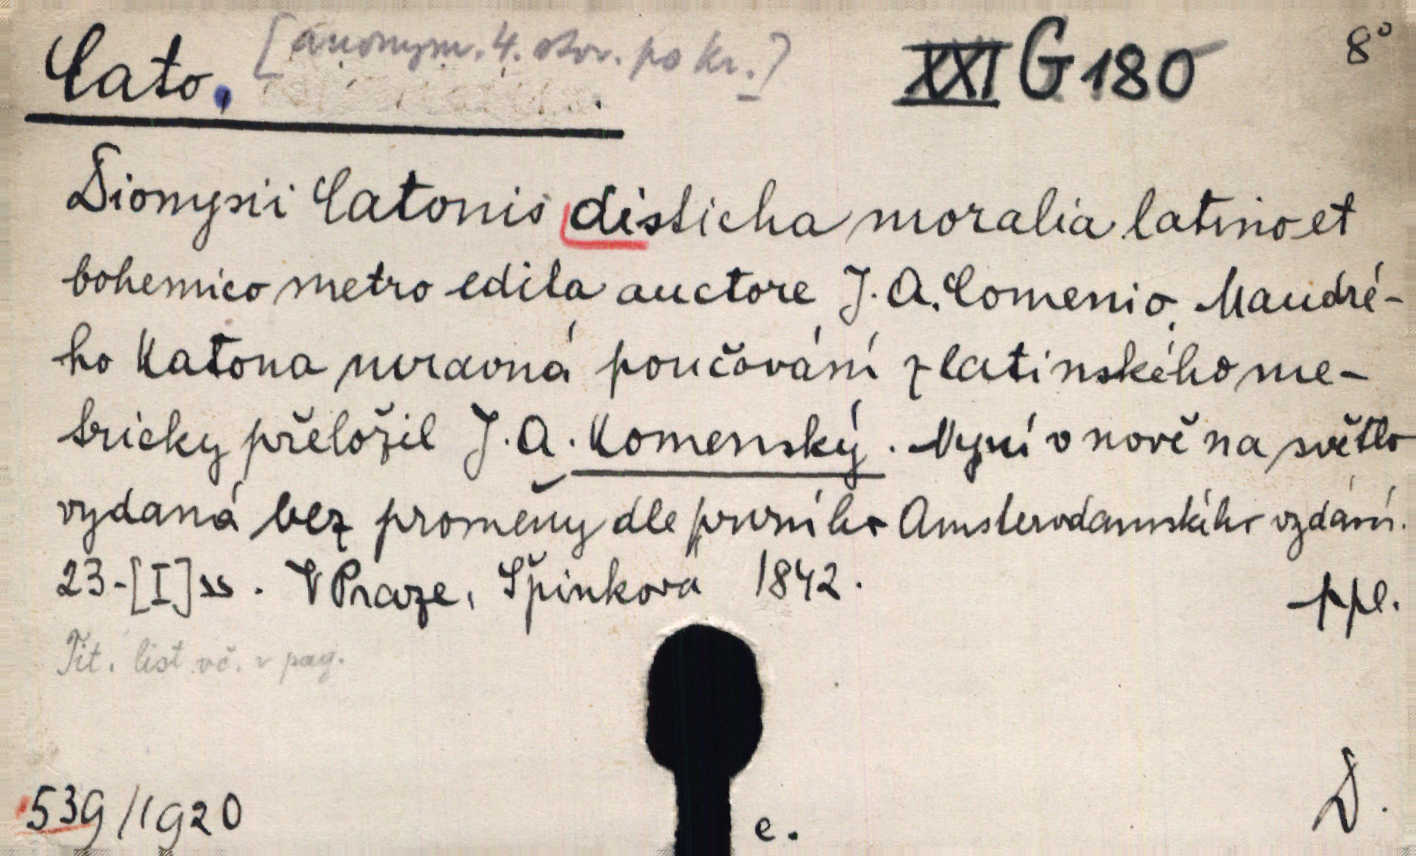 Cato, [anonym. 4. stol. po Kr.] XXI G 180 8°
Dionysii Catonis disticha moralia latino et
bohemico metro edita auctore J. A. Comenio. Maudré-
ho Katona mravná poučování z latinského me-
tricky přeložil J. A. Komenský. Nyní v nově na světlo
vydaná bez proměny dle prvního Amsterodamského vydání.
23-[I] ss. V Praze, Špinkova 1842. ppl.
Tit. list vč. v pag.
539/1920 e. D.